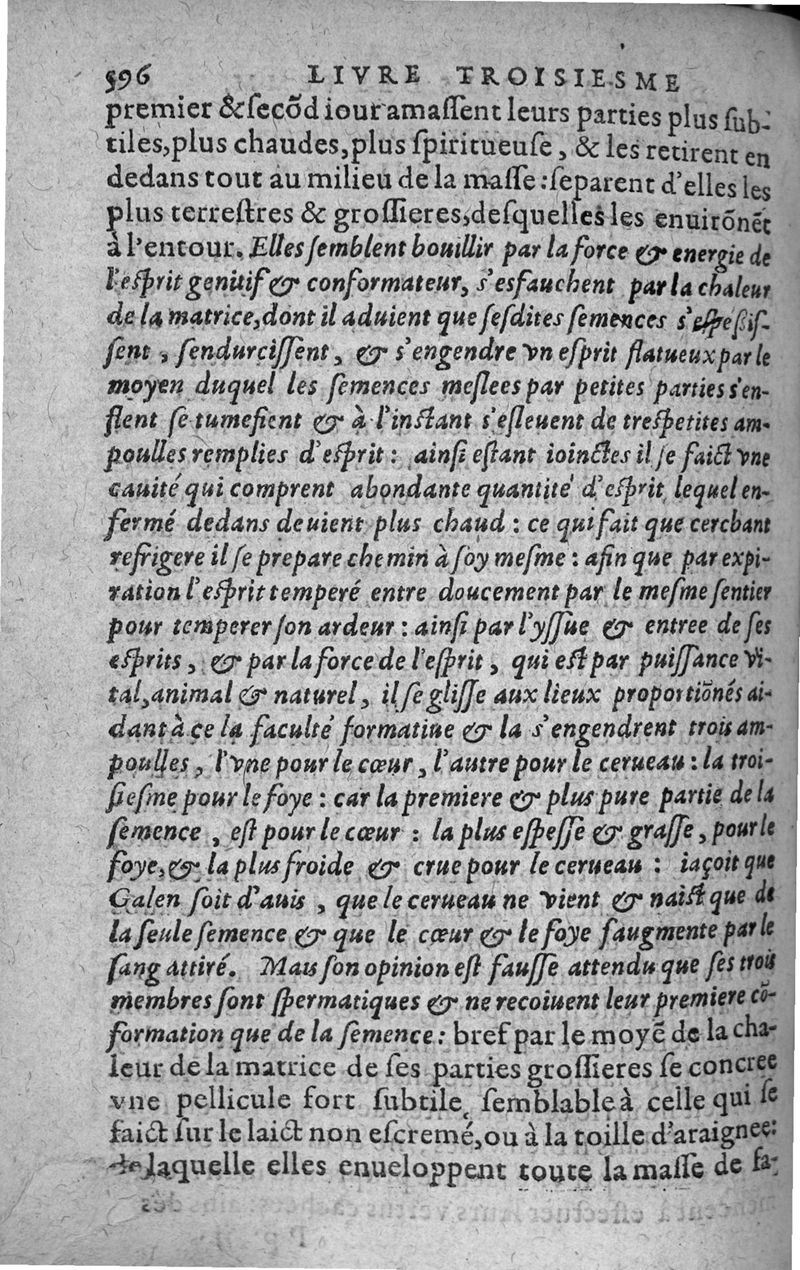 596 LIVRE TROISIESME
premier & ſecõd iour amaſſent leurs parties plus ſub-
tiles, plus chaudes, plus ſpiritueuſe, & les retirent en
dedans tout au milieu de la maſſe: ſeparent d'elles les
plus terreſtres & groſſieres, deſquelles les enuirõnẽt
à l'entour. Elles ſemblent bouillir par la force & energie de
l'eſprit genitif & conformateur, s'eſſauchent par la chaleur
de la matrice, dont il aduient que ſeſdites ſemences s'eſpeſſiſ-
ſent, ſendurciſſent, & s'engendre vn eſprit flatueux par le
moyen duquel les ſemences meſlees par petites parties s'en-
flent ſe tumefient & à l'inſtant s'eſleuent de treſpetites am-
poulles remplies d'eſprit: ainſi eſtant ioinctes il ſe faict vne
cauité qui comprent abondante quantité d'eſprit, lequel en-
fermé dedans deuient plus chaud: ce qui fait que cerchant
refrigere il ſe prepare chemin à ſoy meſme: afin que par expi-
ration l'eſprit temperé entre doucement par le meſme ſentier
pour temperer ſon ardeur: ainſi par l'yſſue & entree de ſes
eſprits, & par la force de l'eſprit, qui eſt par puiſſance vi-
tal, animal & naturel, il ſe gliſſe aux lieux proportiõnés ai-
dant à ce la faculté formatiue & la s'engendrent trois am-
poulles, l'vne pour le cœur, l'autre pour le cerueau: la troi-
ſieſme pour le foye: car la premiere & plus pure partie de la
ſemence, eſt pour le cœur: la plus eſpeſſe & graſſe, pour le
foye, & la plus froide & crue pour le cerueau: iaçoit que
Galen ſoit d'auis, que le cerueau ne vient & naiſt que de
la ſeule ſemence & que le cœur & le foye ſaugmente par le
ſang attiré. Mais ſon opinion eſt fauſſe attendu que ſes trois
membres ſont ſpermatiques & ne recoiuent leur premiere cõ-
formation que de la ſemence: bref par le moyẽ de la cha-
leur de la matrice de ſes parties groſſieres ſe concree
vne pellicule fort ſubtile, ſemblable à celle qui ſe
faict ſur le laict non eſcremé, ou à la toille d'araignee:
de laquelle elles enueloppent toute la maſſe de ſa-